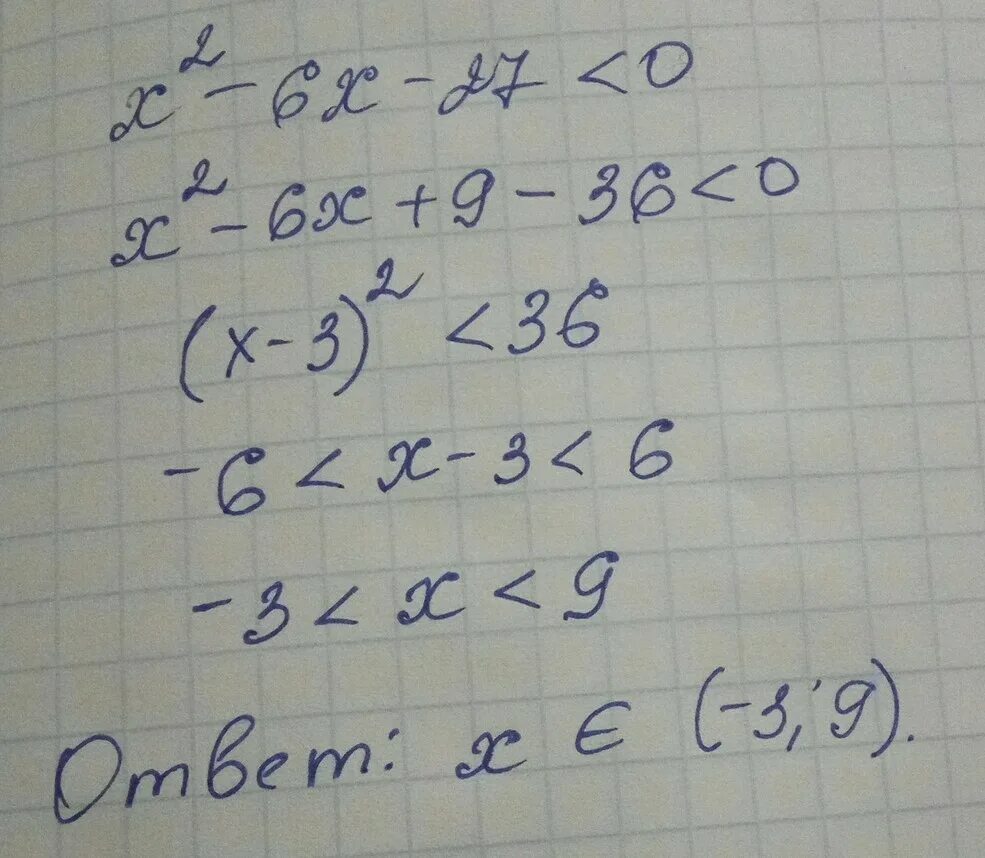 x² - 6x - 27 < 0
x² - 6x + 9 - 36 < 0
(x - 3)² < 36
-6 < x - 3 < 6
-3 < x < 9
Ответ: x ∈ (-3; 9).